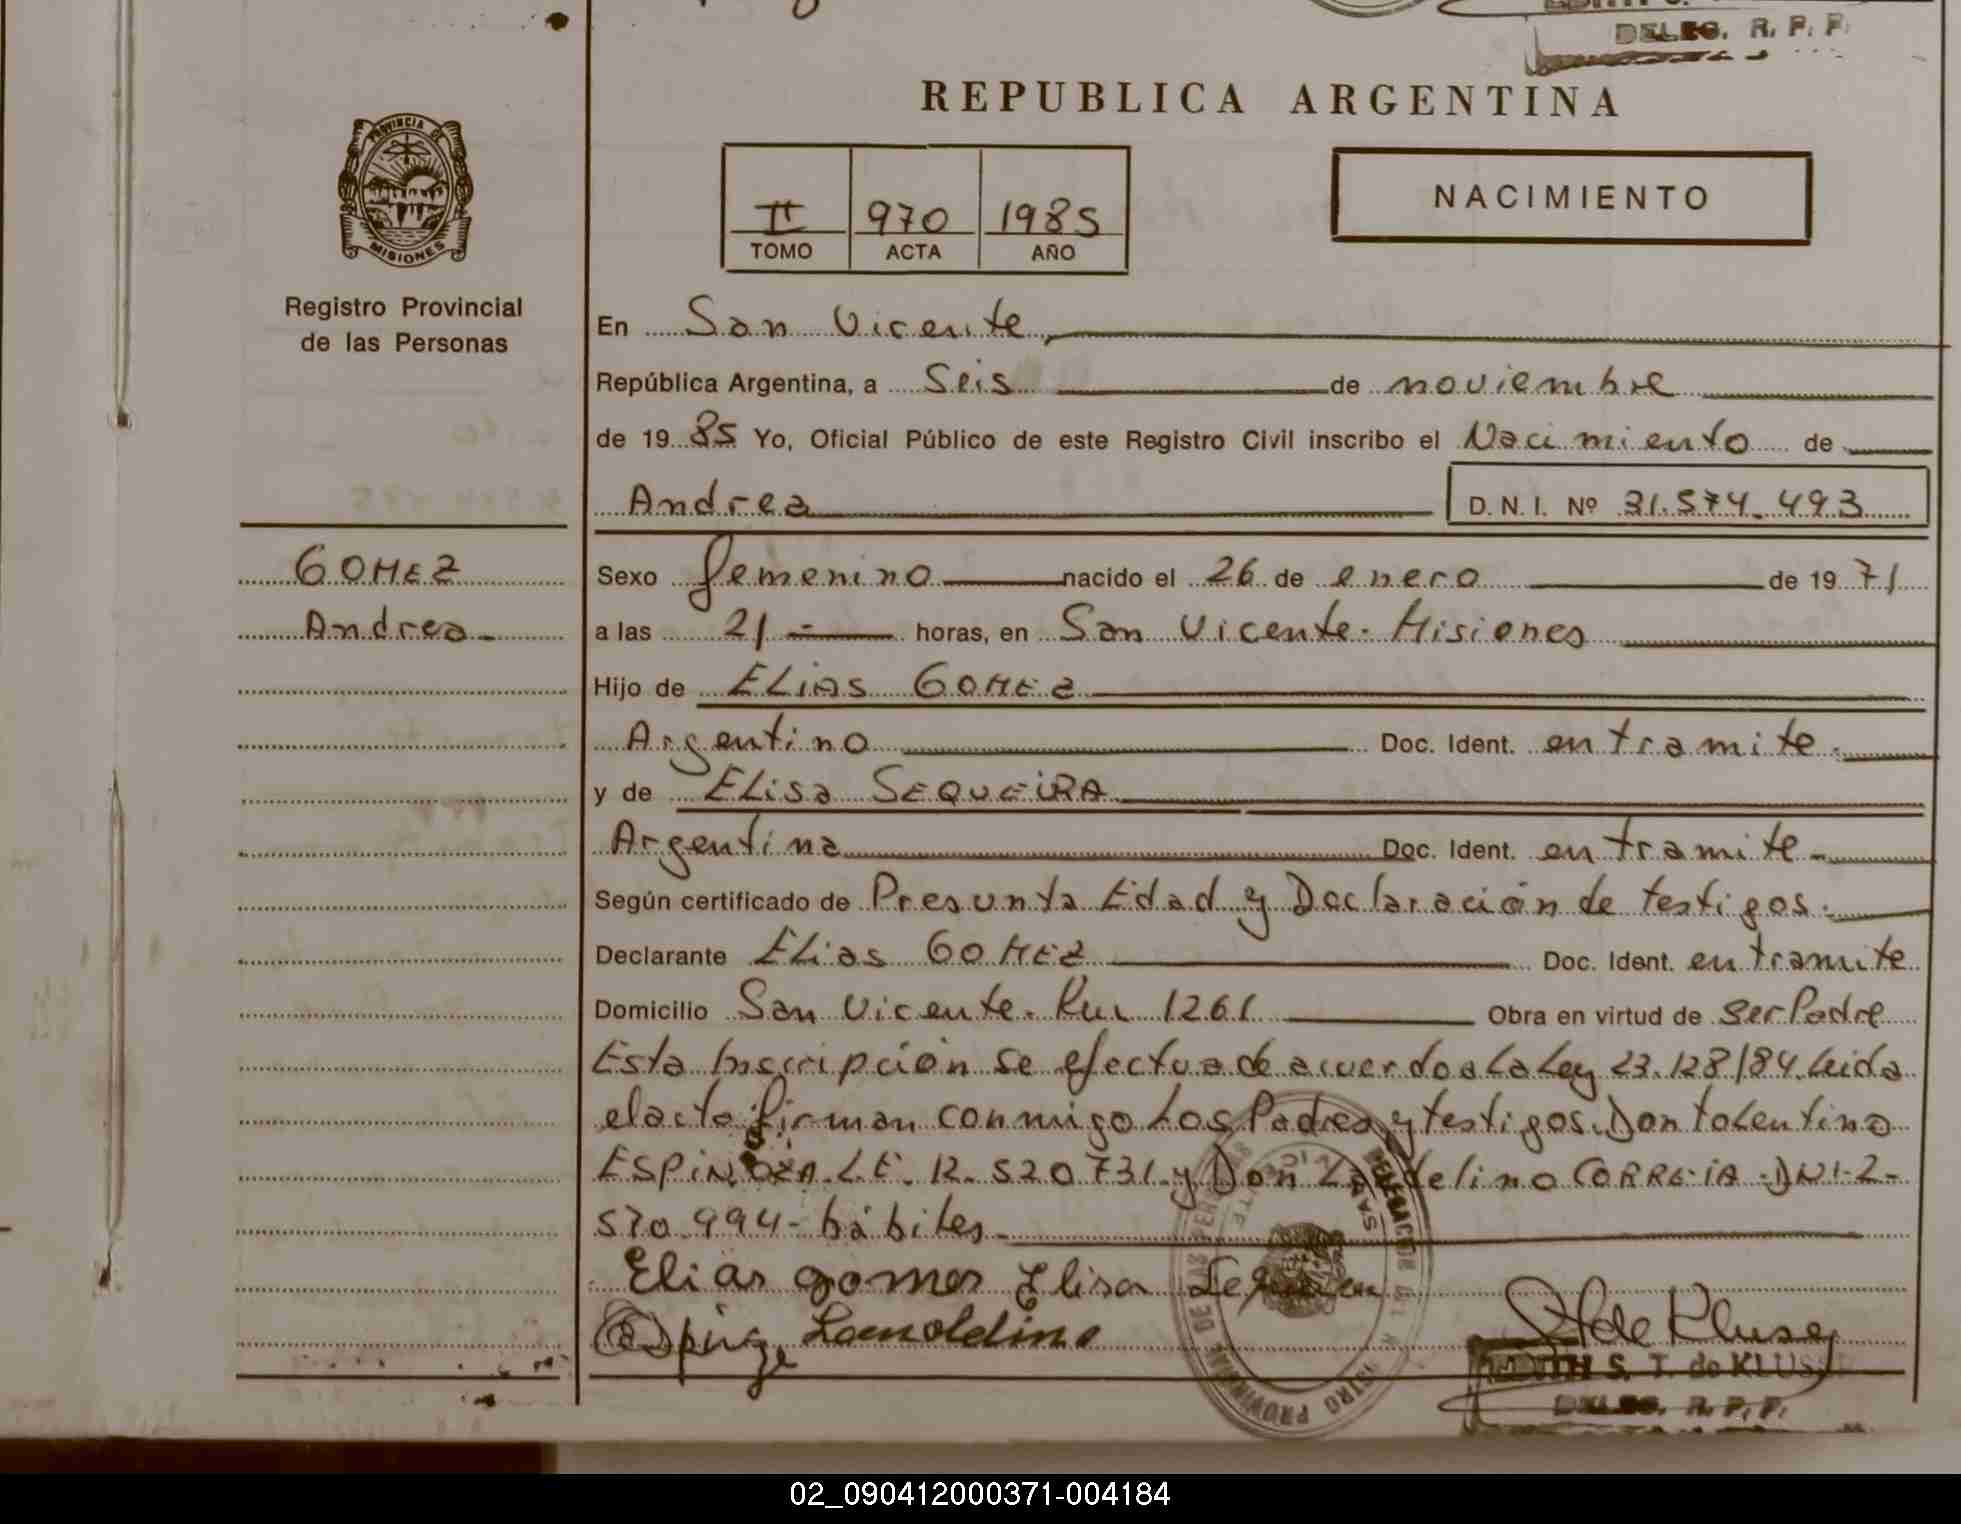 DELEG. R. P. P.
REPUBLICA ARGENTINA
PROVINCIA DE
MISIONES
II 970 1985
TOMO ACTA AÑO
NACIMIENTO
Registro Provincial
de las Personas
En San Vicente,
República Argentina, a Seis de noviembre
de 1985 Yo, Oficial Público de este Registro Civil inscribo el Nacimiento de
Andrea D. N. I. Nº 31.574.493
GOMEZ
Andrea
Sexo femenino nacido el 26 de enero de 1971
a las 21 - horas, en San Vicente. Misiones
Hijo de ELIAS GOMEZ
Argentino Doc. Ident. en tramite.
y de ELisa SEQUEiRA
Argentina Doc. Ident. en tramite-
Según certificado de Presunta Edad y Declaración de testigos.
Declarante ELias GOMEZ Doc. Ident. en tramite
Domicilio San Vicente. Rur 1261 Obra en virtud de Ser Padre
Esta Inscripción se efectua de acuerdo a La Ley 23.128/84. Leida
el acto firman conmigo Los Padres y testigos. Don toLentino
ESPiNOZA. L.E. 12.520731 y Don delino CORREIA - DNI-2-
570.994- hábiles
Elias gomes Elisa
Espinoza
de Kluss
EDITH S. T. de KLUSS
DELEG. R. P. P.
02_090412000371-004184